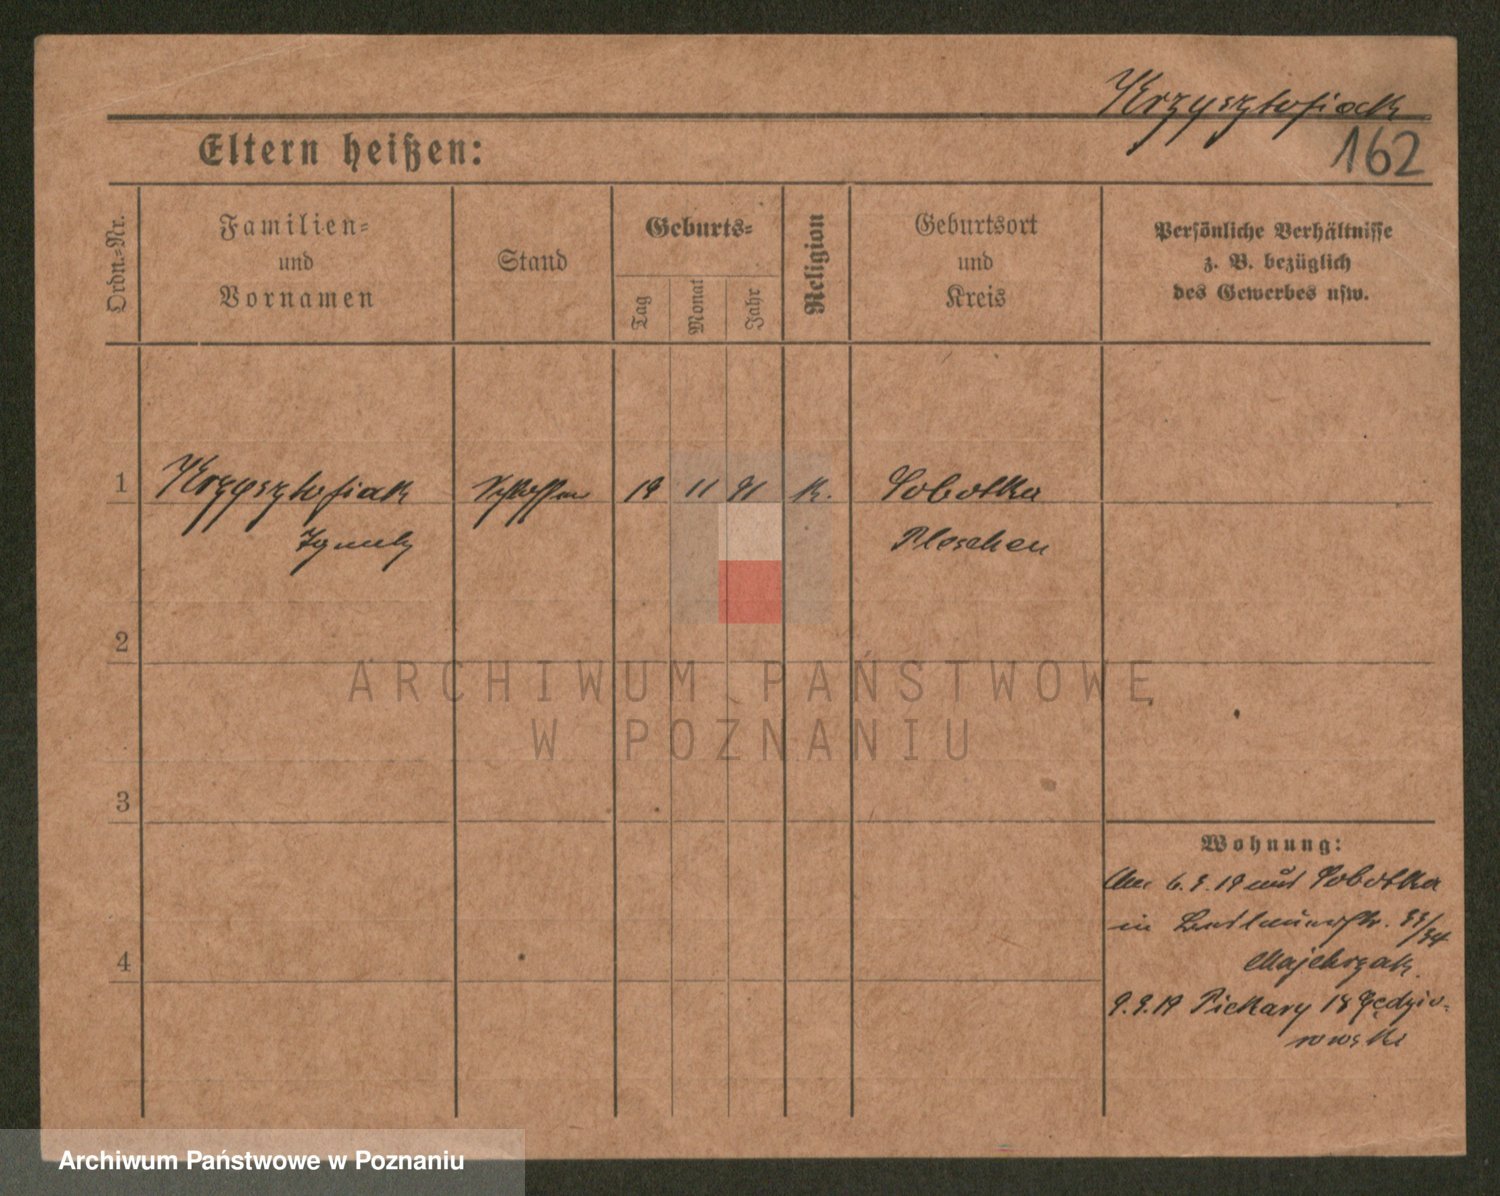 Krzysztofiak
162
Eltern heißen:
Ordn.-Nr.
Familien-
und
Vornamen
Stand
Geburts-
Tag
Monat
Jahr
Religion
Geburtsort
und
Kreis
Persönliche Verhältnisse
z. B. bezüglich
des Gewerbes usw.
1 Krzysztofiak 19 11 91 K. Sobotka
Ignatz Pleschen
2
3
4
Wohnung:
6.9.19 aus Sobotka
in 33/34
Majchrzak
9.9.19 Piekary 18 Gędzio-
rowski
ARCHIWUM PAŃSTWOWE
W POZNANIU
Archiwum Państwowe w Poznaniu